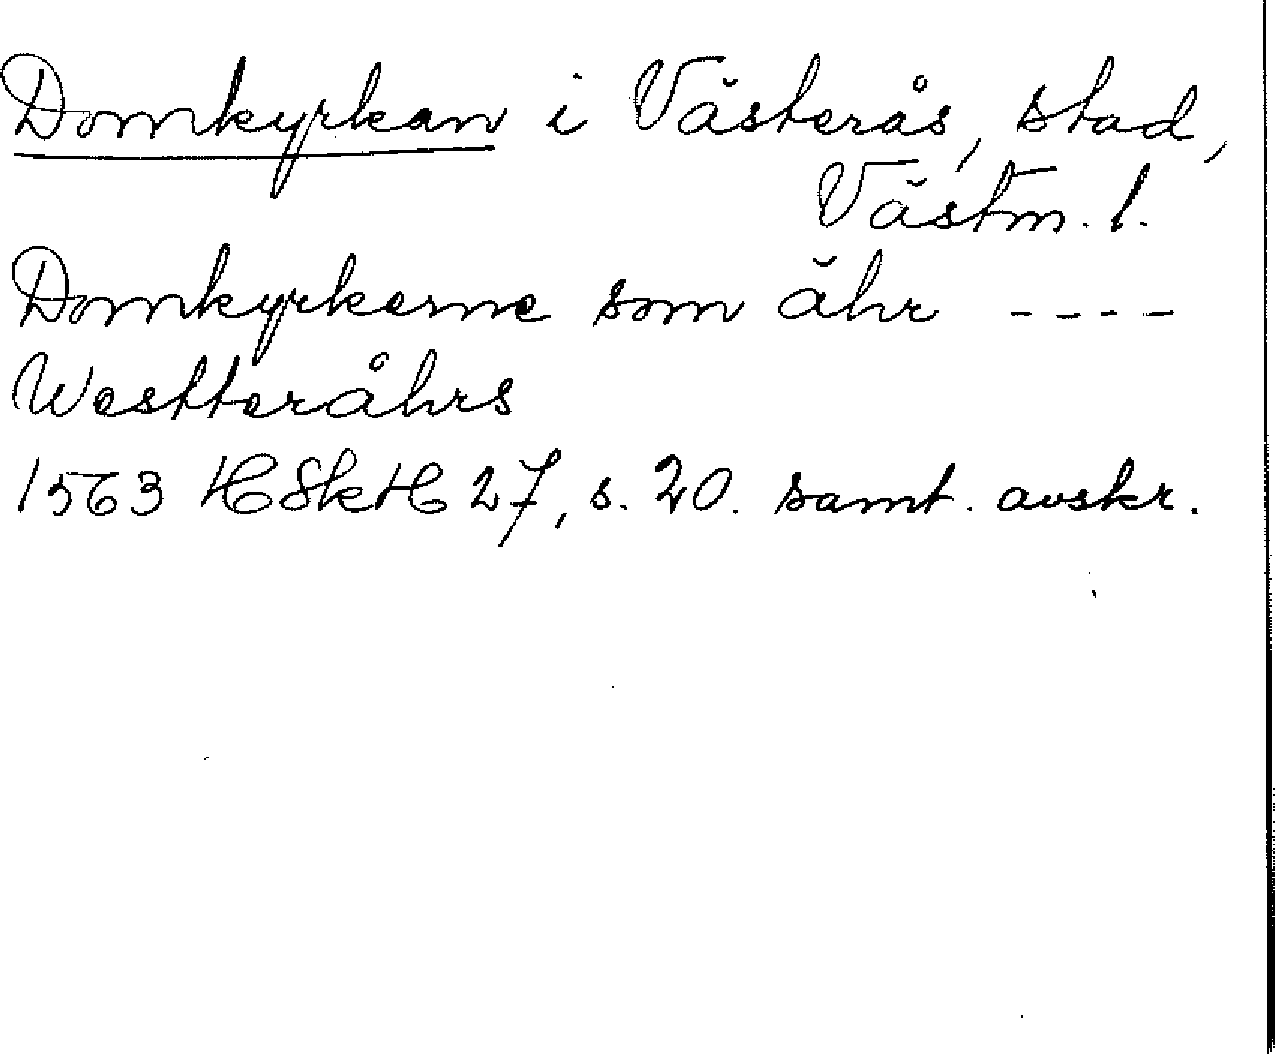 Domkyrkan i Västerås, stad,
Västm. l.
Domkyrkerne som ähr ----
Westteråhrs
1563 HSkH 27, s. 20. samt. avskr.